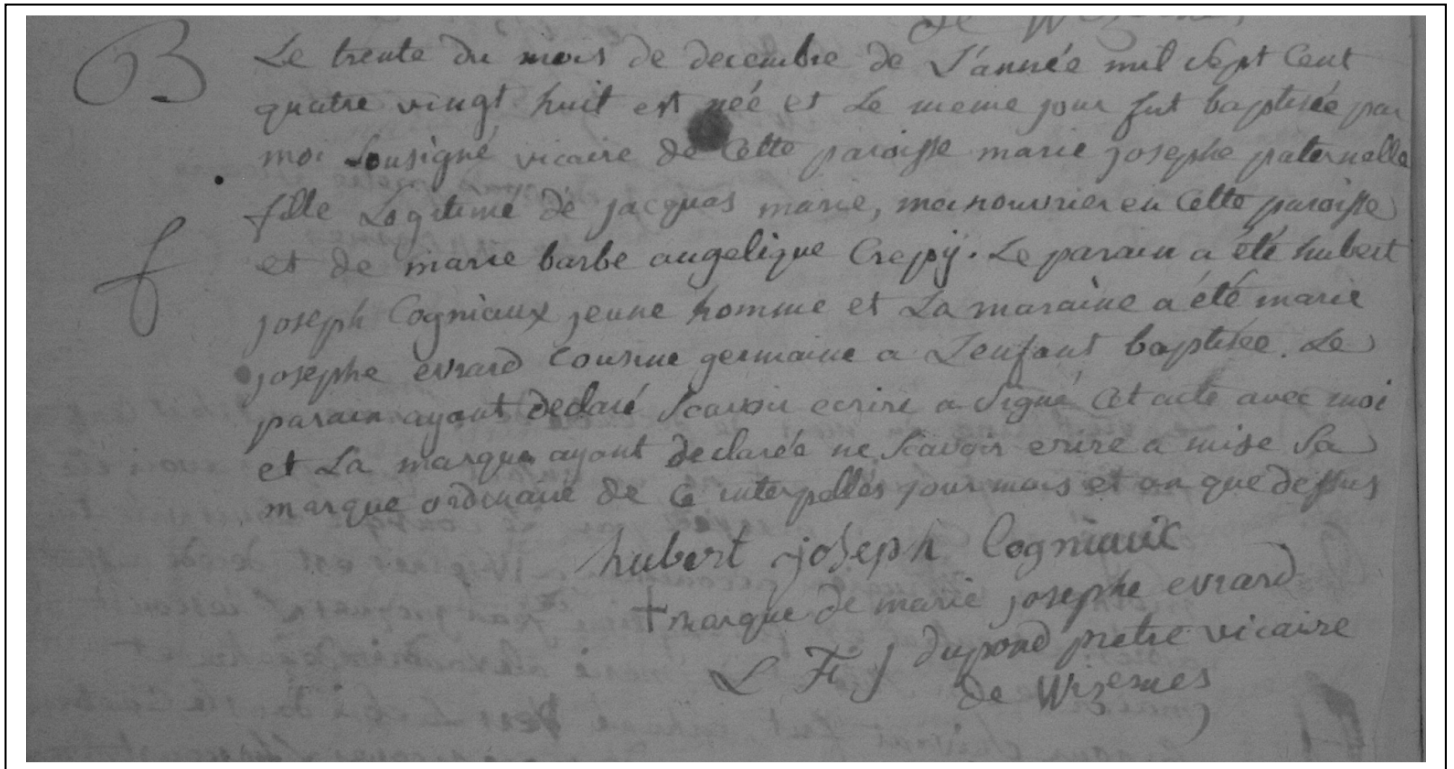 de Wizernes
B Le trente du mois de decembre de L'année mil sept Cent
quatre vingt huit est née et Le meme jour fut baptisée par
moi Sousigné vicaire de Cette paroisse marie josephe paternelle
fille Legitime de jacques marie, menounier en Cette paroisse
f et de marie barbe angelique Crepÿ. Le parain a été hubert
joseph Cogniaux jeune homme et La maraine a été marie
josephe evrard Cousine germaine a L'enfant baptisée. Le
parain ayant declaré Scavoir ecrire a signé Cet acte avec moi
et La marque ayant declarée ne Scavoir ecrire a mise Sa
marque ordinaire de Ce interpellés jour mois et an que dessus
hubert joseph Cogniaux
+ marque de marie josephe evrard
L F j dupond pretre vicaire
de Wizernes